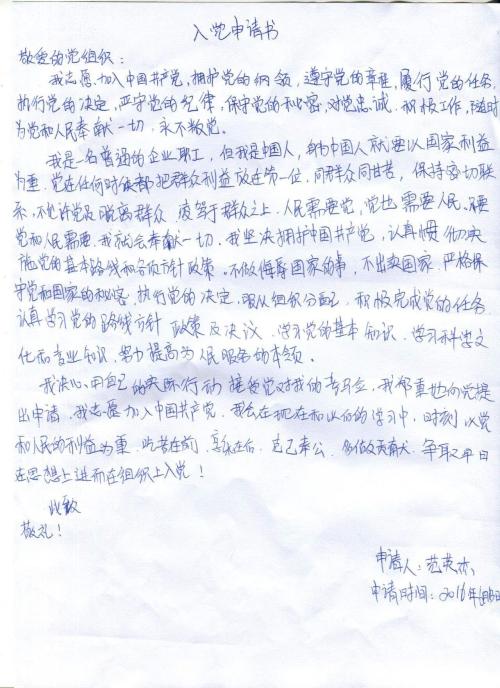 入党申请书
敬爱的党组织：
我志愿加入中国共产党，拥护党的纲领，遵守党的章程，履行党的任务，
执行党的决定，严守党的纪律，保守党的秘密，对党忠诚，积极工作，随时
为党和人民奉献一切，永不叛党。
我是一名普通的企业职工，但我是中国人，身为中国人就要以国家利益
为重。党在任何时候都把群众利益放在第一位，同群众同甘苦，保持密切联
系，不允许党员脱离群众，凌驾于群众之上。人民需要党，党也需要人民，只要
党和人民需要，我就会奉献一切。我坚决拥护中国共产党，认真贯彻实
施党的基本路线和各项方针政策。不做侮辱国家的事，不出卖国家，严格保
守党和国家的秘密，执行党的决定，服从组织分配，积极完成党的任务。
认真学习党的路线方针 政策及决议，学习党的基本知识，学习科学文
化和专业知识，努力提高为人民服务的本领。
我决心用自己的实际行动接受党对我的考验，我郑重地向党提
出申请，我志愿加入中国共产党，我会在现在和以后的学习中，时刻以党
和人民的利益为重，吃苦在前，享乐在后，克己奉公，多做贡献，争取早日
在思想上进而在组织上入党！
此致
敬礼！
申请人：范英杰
申请时间：2016年